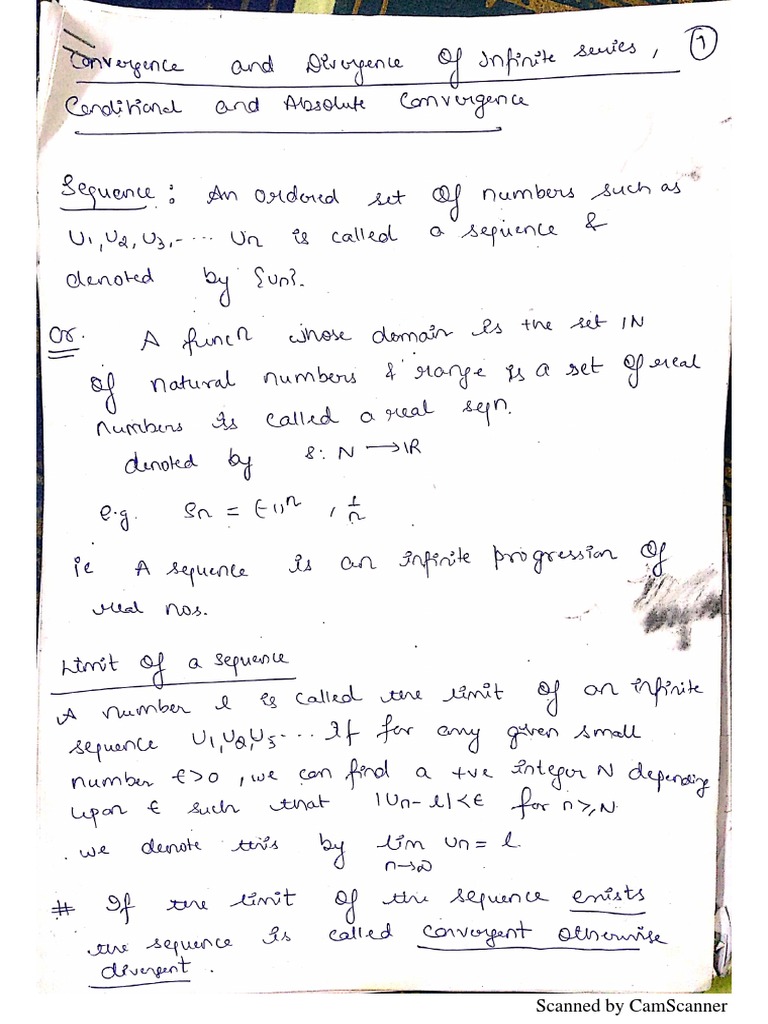 Convergence and Divergence Of Infinite series, 1
Conditional and Absolute Convergence
Sequence: An ordered set Of numbers such as
U1, U2, U3, - ... Un is called a sequence &
denoted by {Un}.
Or. A funcn whose domain is the set IN
Of natural numbers & range is a set Of real
numbers is called a real seqn.
denoted by S: N → IR
e.g. Sn = (-1)^n , 1/n
ie A sequence is an infinite progression Of
real nos.
Limit Of a sequence
A number l is called the limit Of an infinite
sequence U1, U2, U3 - ... If for any given small
number ϵ>0, we can find a +ve integer N depending
upon ϵ such that |Un - l| < ϵ for n ≥ N.
. we denote this by lim Un = l.
n→∞
# If the limit Of the sequence exists
the sequence is called convergent otherwise
divergent.
Scanned by CamScanner